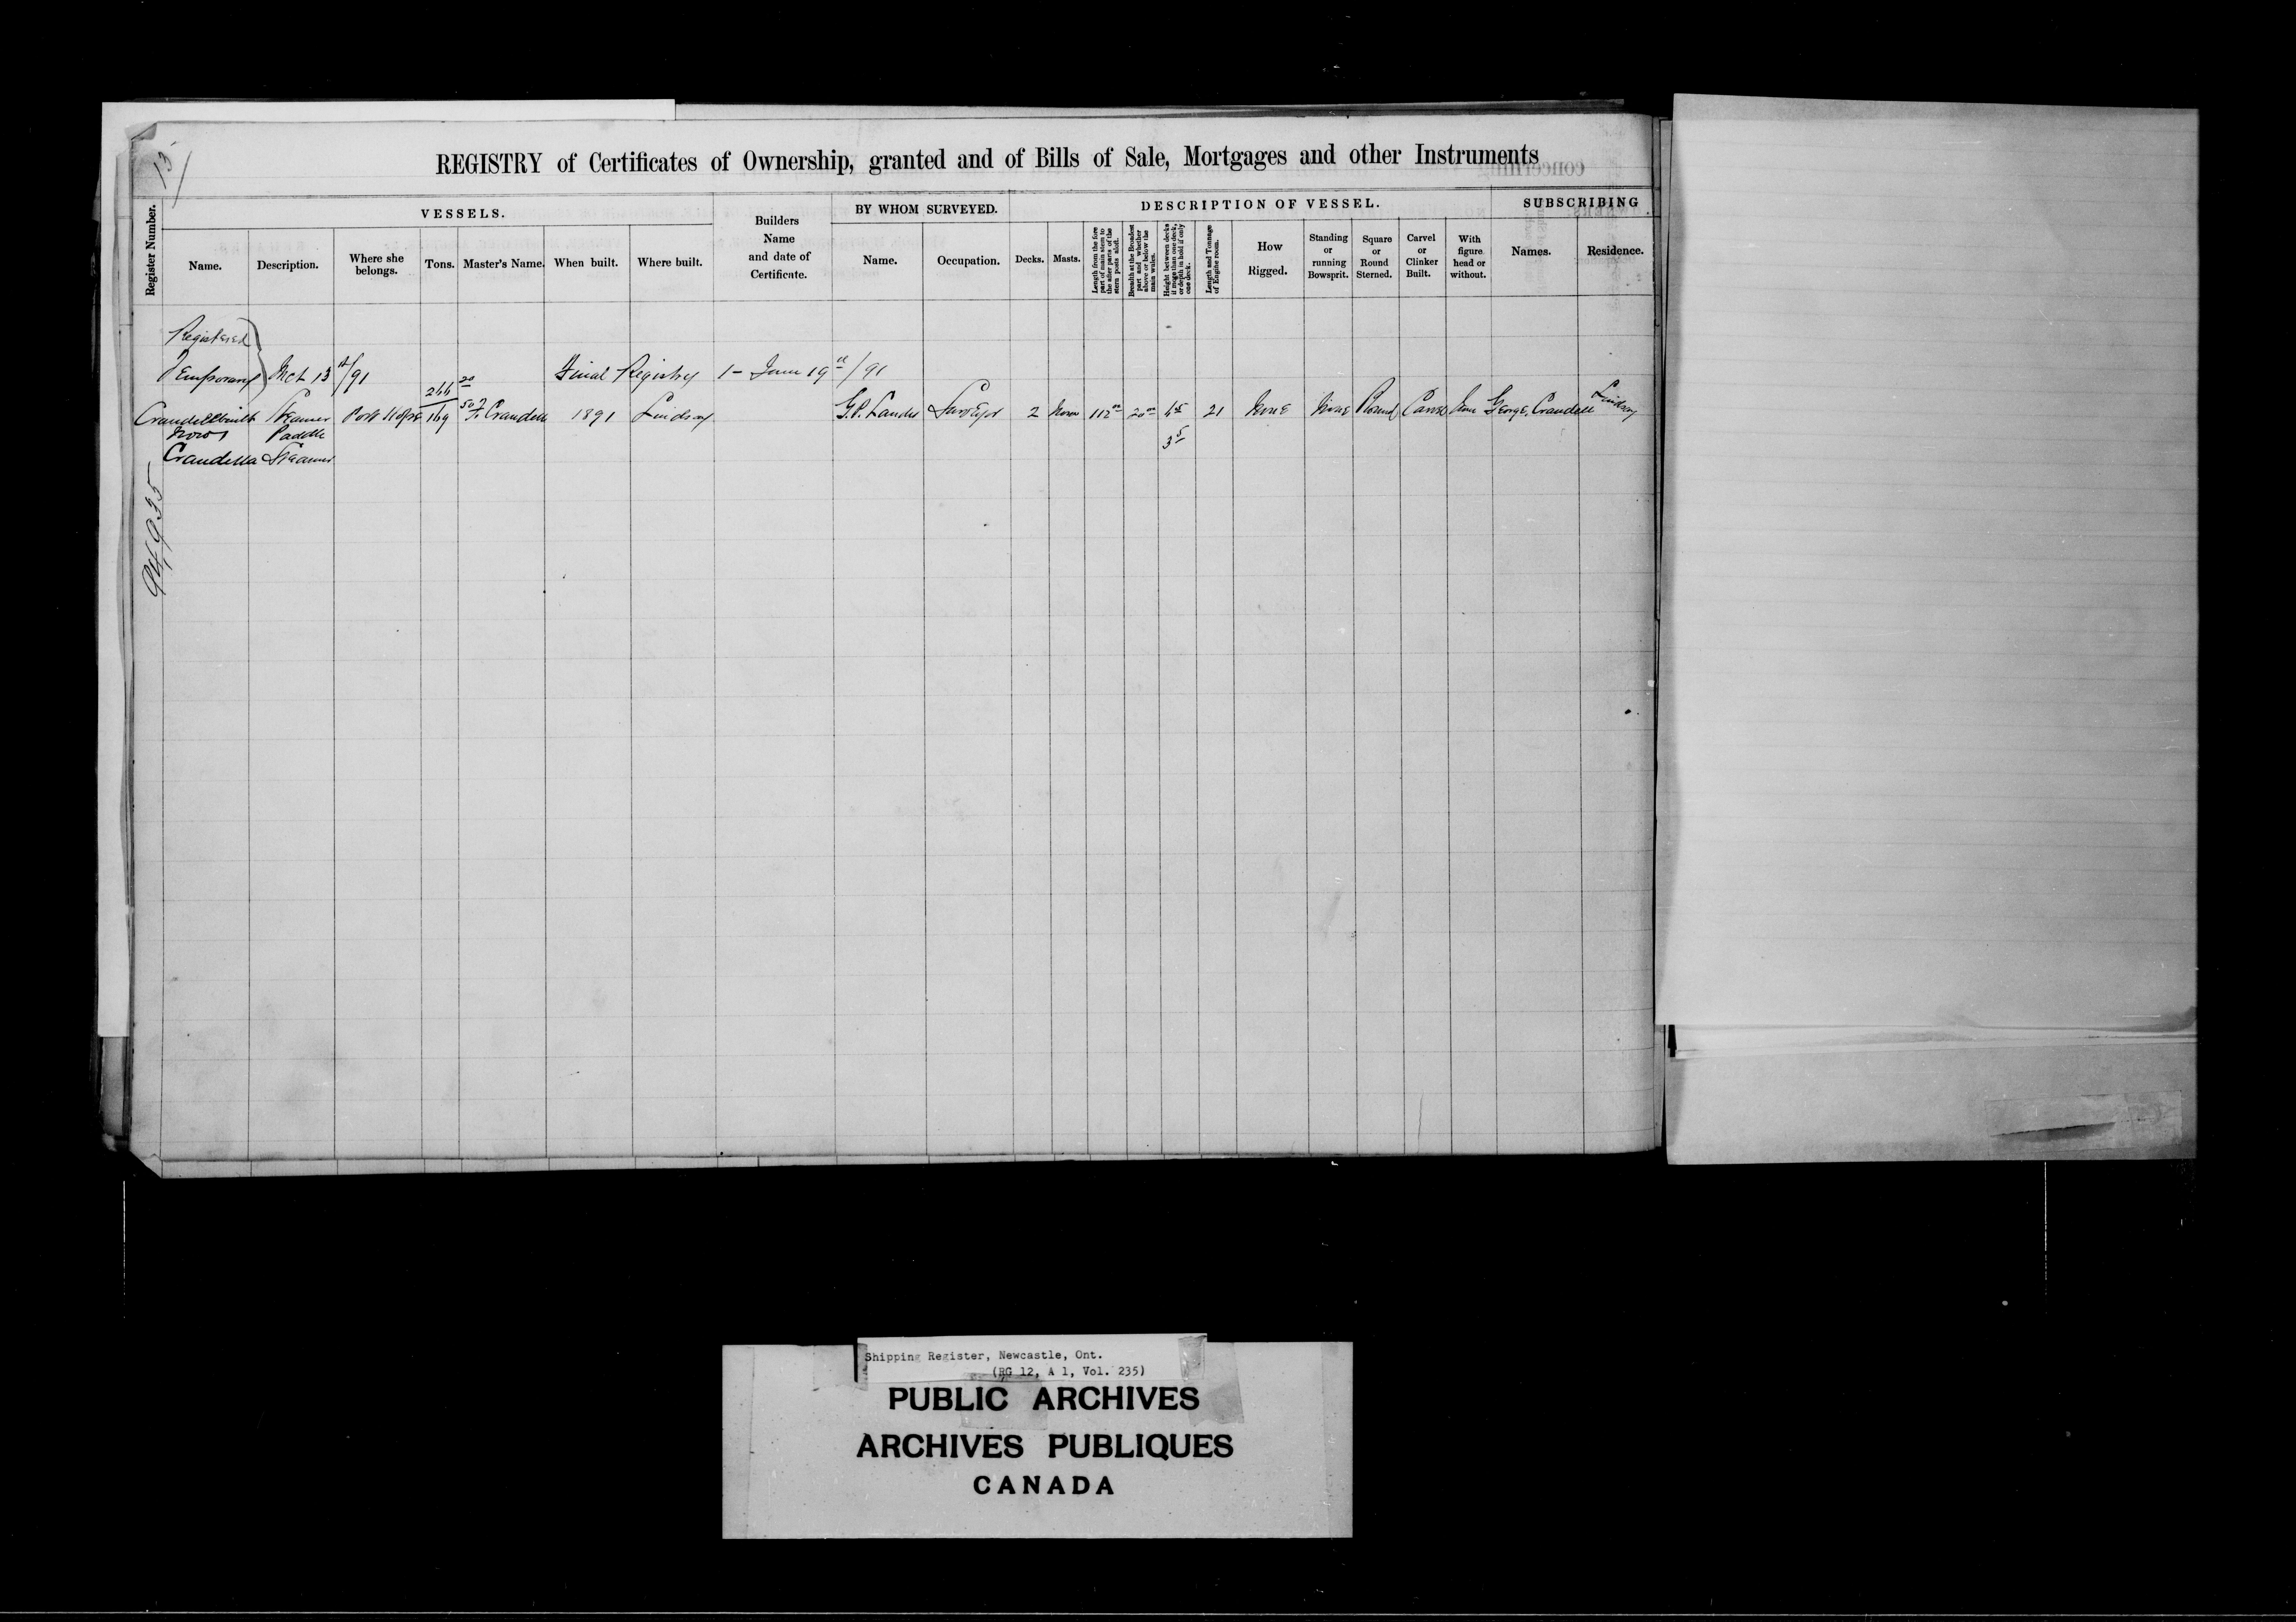 13
REGISTRY of Certificates of Ownership, granted and of Bills of Sale, Mortgages and other Instruments
concerning
Register Number.
VESSELS.
Name.
Description.
Where she belongs.
Tons.
Master's Name.
When built.
Where built.
Builders
Name
and date of
Certificate.
BY WHOM SURVEYED.
Name.
Occupation.
DESCRIPTION OF VESSEL.
Decks.
Masts.
Length from the fore part of main stem to the after parts of the stern posts aloft.
Breadth at the Broadest part and whether above or below the main wales.
Height between decks if more than one deck, or depth in hold if only one deck.
Length and Tonnage of Engine room.
How
Rigged.
Standing
or
running
Bowsprit.
Square
or
Round
Sterned.
Carvel
or
Clinker
Built.
With
figure
head or
without.
SUBSCRIBING
Names.
Residence.
Registered
Temporary Oct 13 /91 Final Registry 1 - June 19th /91
266 20
Steamer Port Hope 169 50 F. Crandell 1891 Lindsay G.P. Surveyor 2 None 112 20 21 None None Round Carvel None George Crandell Lindsay
now Paddle 3 5
Crandella Steamer
94935
Shipping Register, Newcastle, Ont.
(RG 12, A 1, Vol. 235)
PUBLIC ARCHIVES
ARCHIVES PUBLIQUES
CANADA